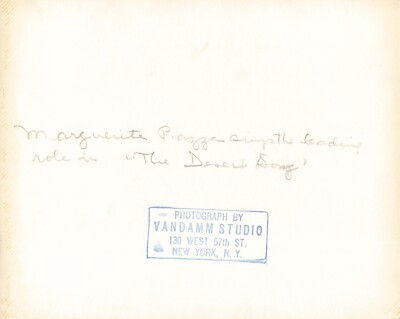 Marguerite Piazza sings the leading
role in "The Desert Song"
PHOTOGRAPH BY
VANDAMM STUDIO
130 WEST 57th ST.
NEW YORK, N. Y.